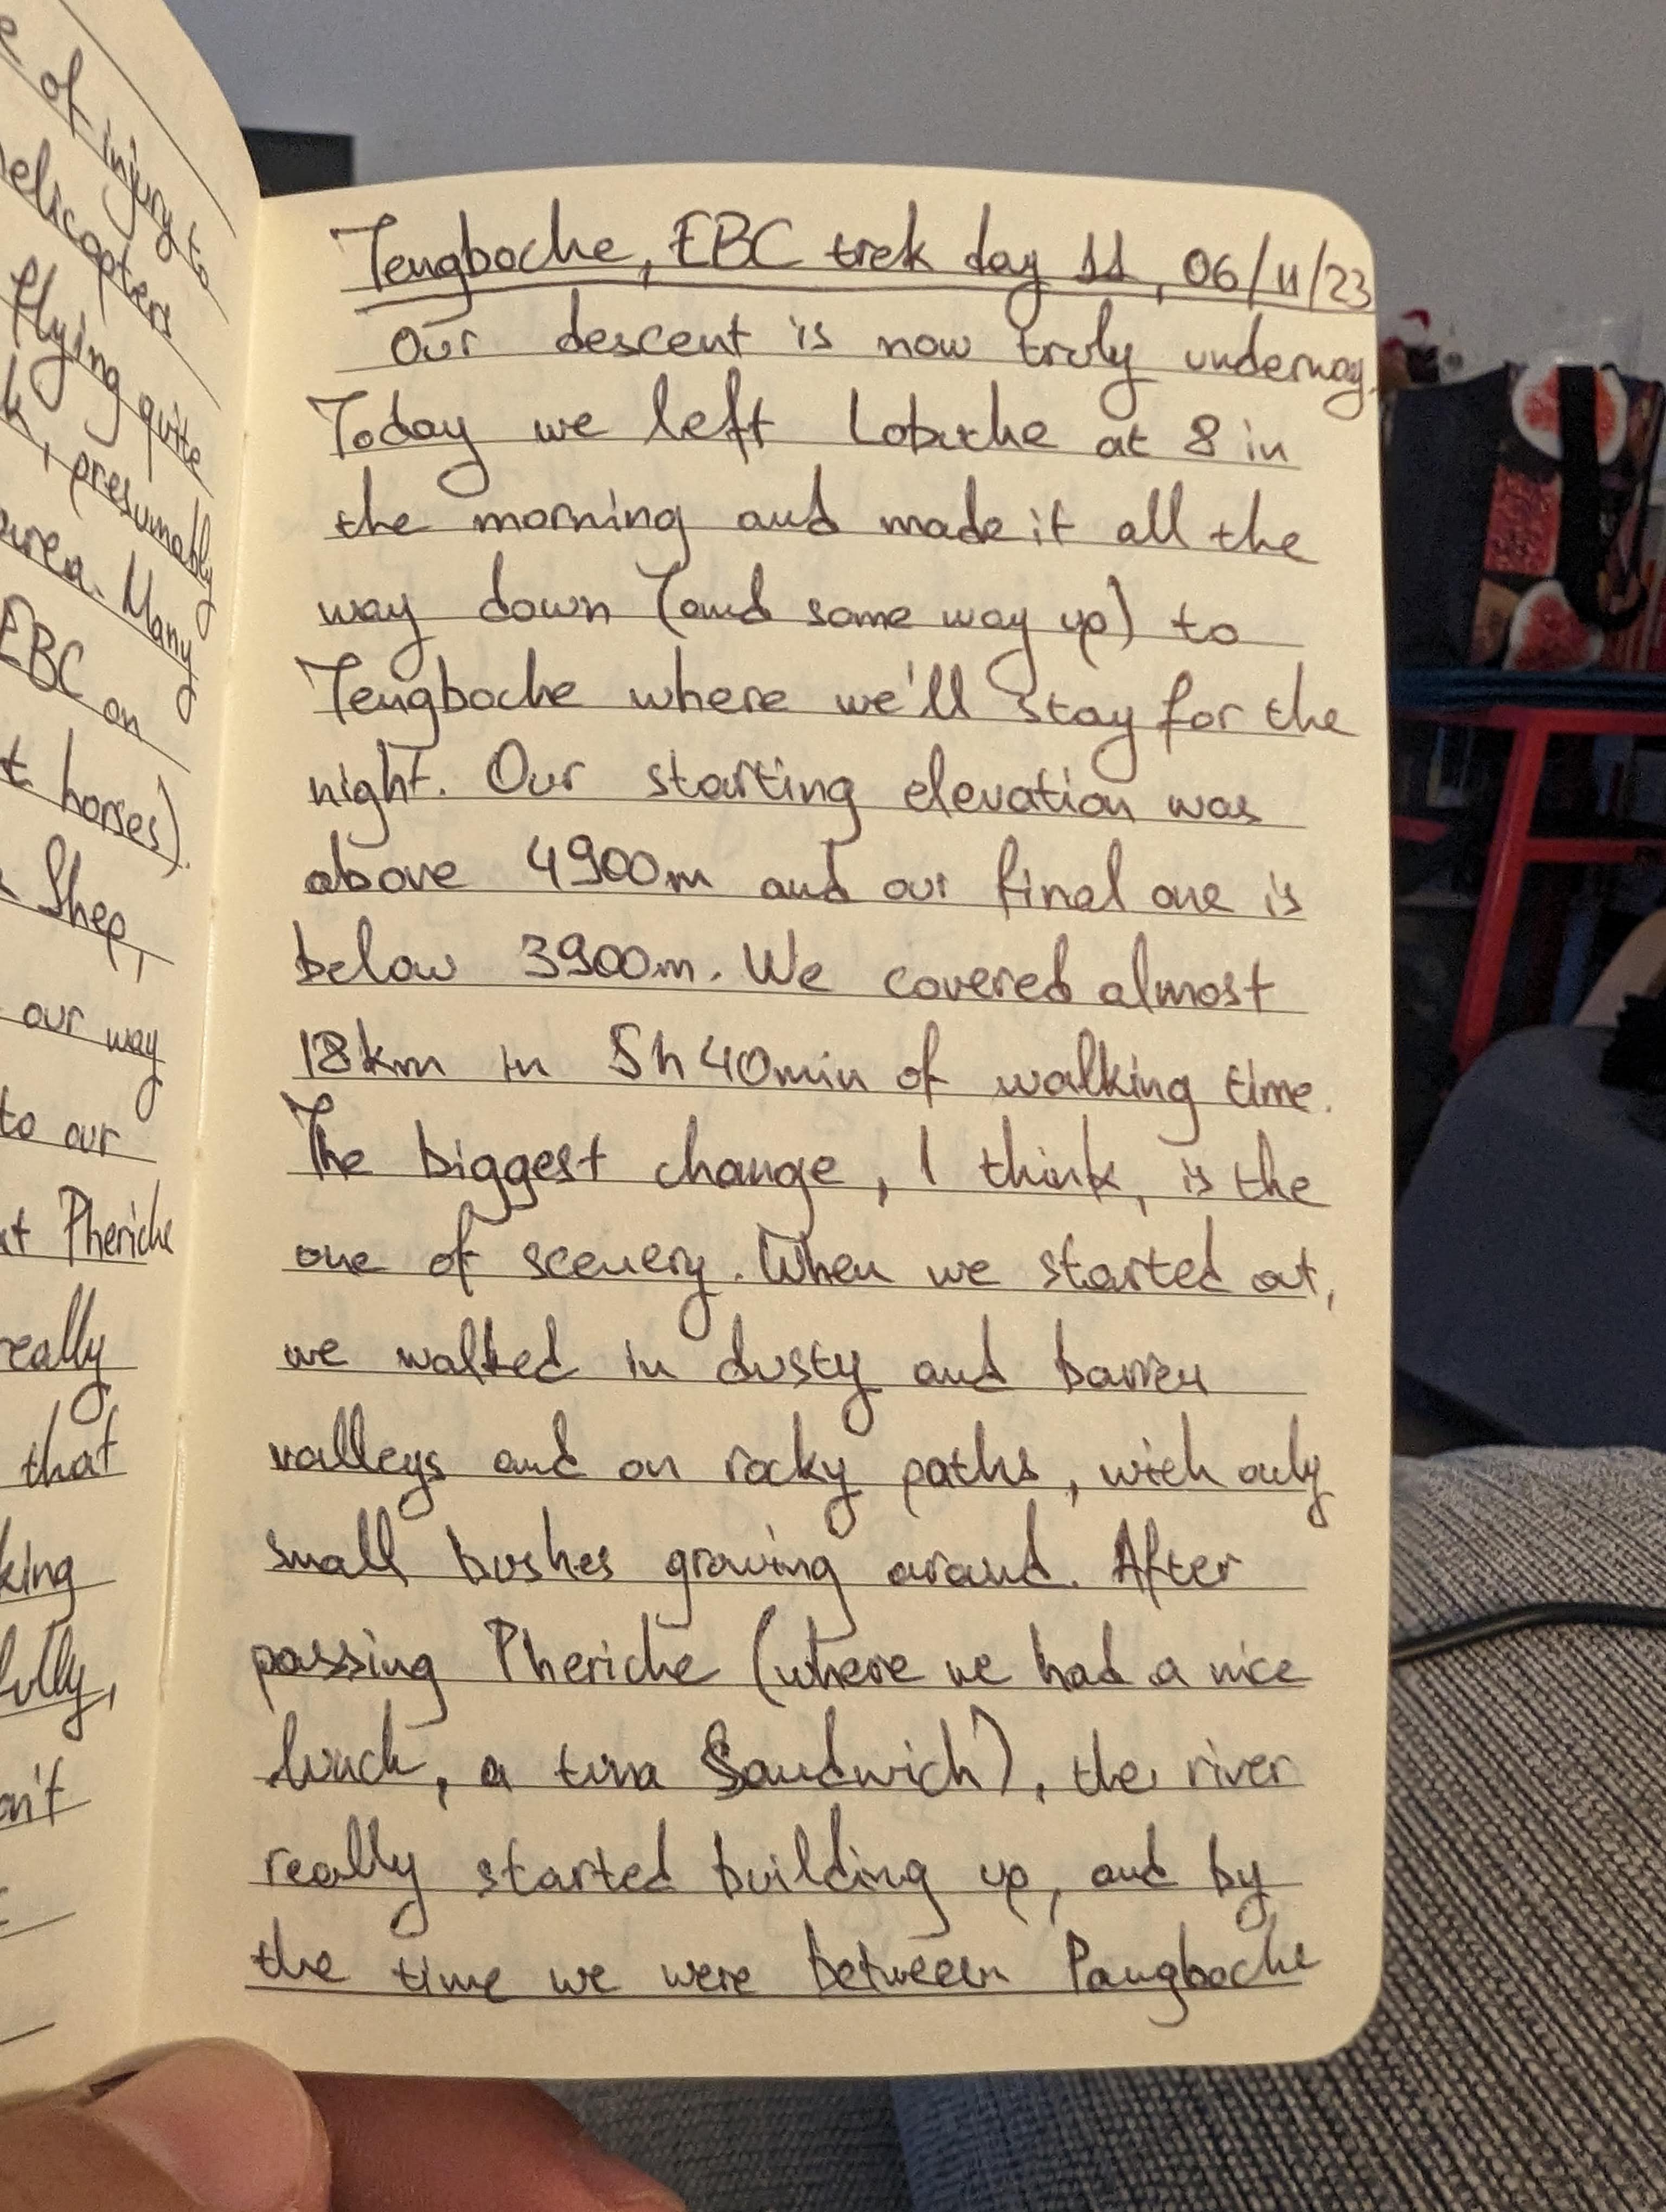 e of injury to
elicopters
flying quite
k, presumably
area. Many
EBC on
t horses).
Shep,
our way
to our
at Pheriche
really
that
king
fully,
on't
Tengboche, EBC trek day 11, 06/11/23
Our descent is now truly underway.
Today we left Lobuche at 8 in
the morning and made it all the
way down (and some way up) to
Tengboche where we'll stay for the
night. Our starting elevation was
above 4900m and our final one is
below 3900m. We covered almost
18km in 5h 40min of walking time.
The biggest change, I think, is the
one of scenery. When we started out,
we walked in dusty and barren
valleys and on rocky paths, with only
small bushes growing around. After
passing Pheriche (where we had a nice
lunch, a tuna Sandwich), the river
really started building up, and by
the time we were between Pangboche